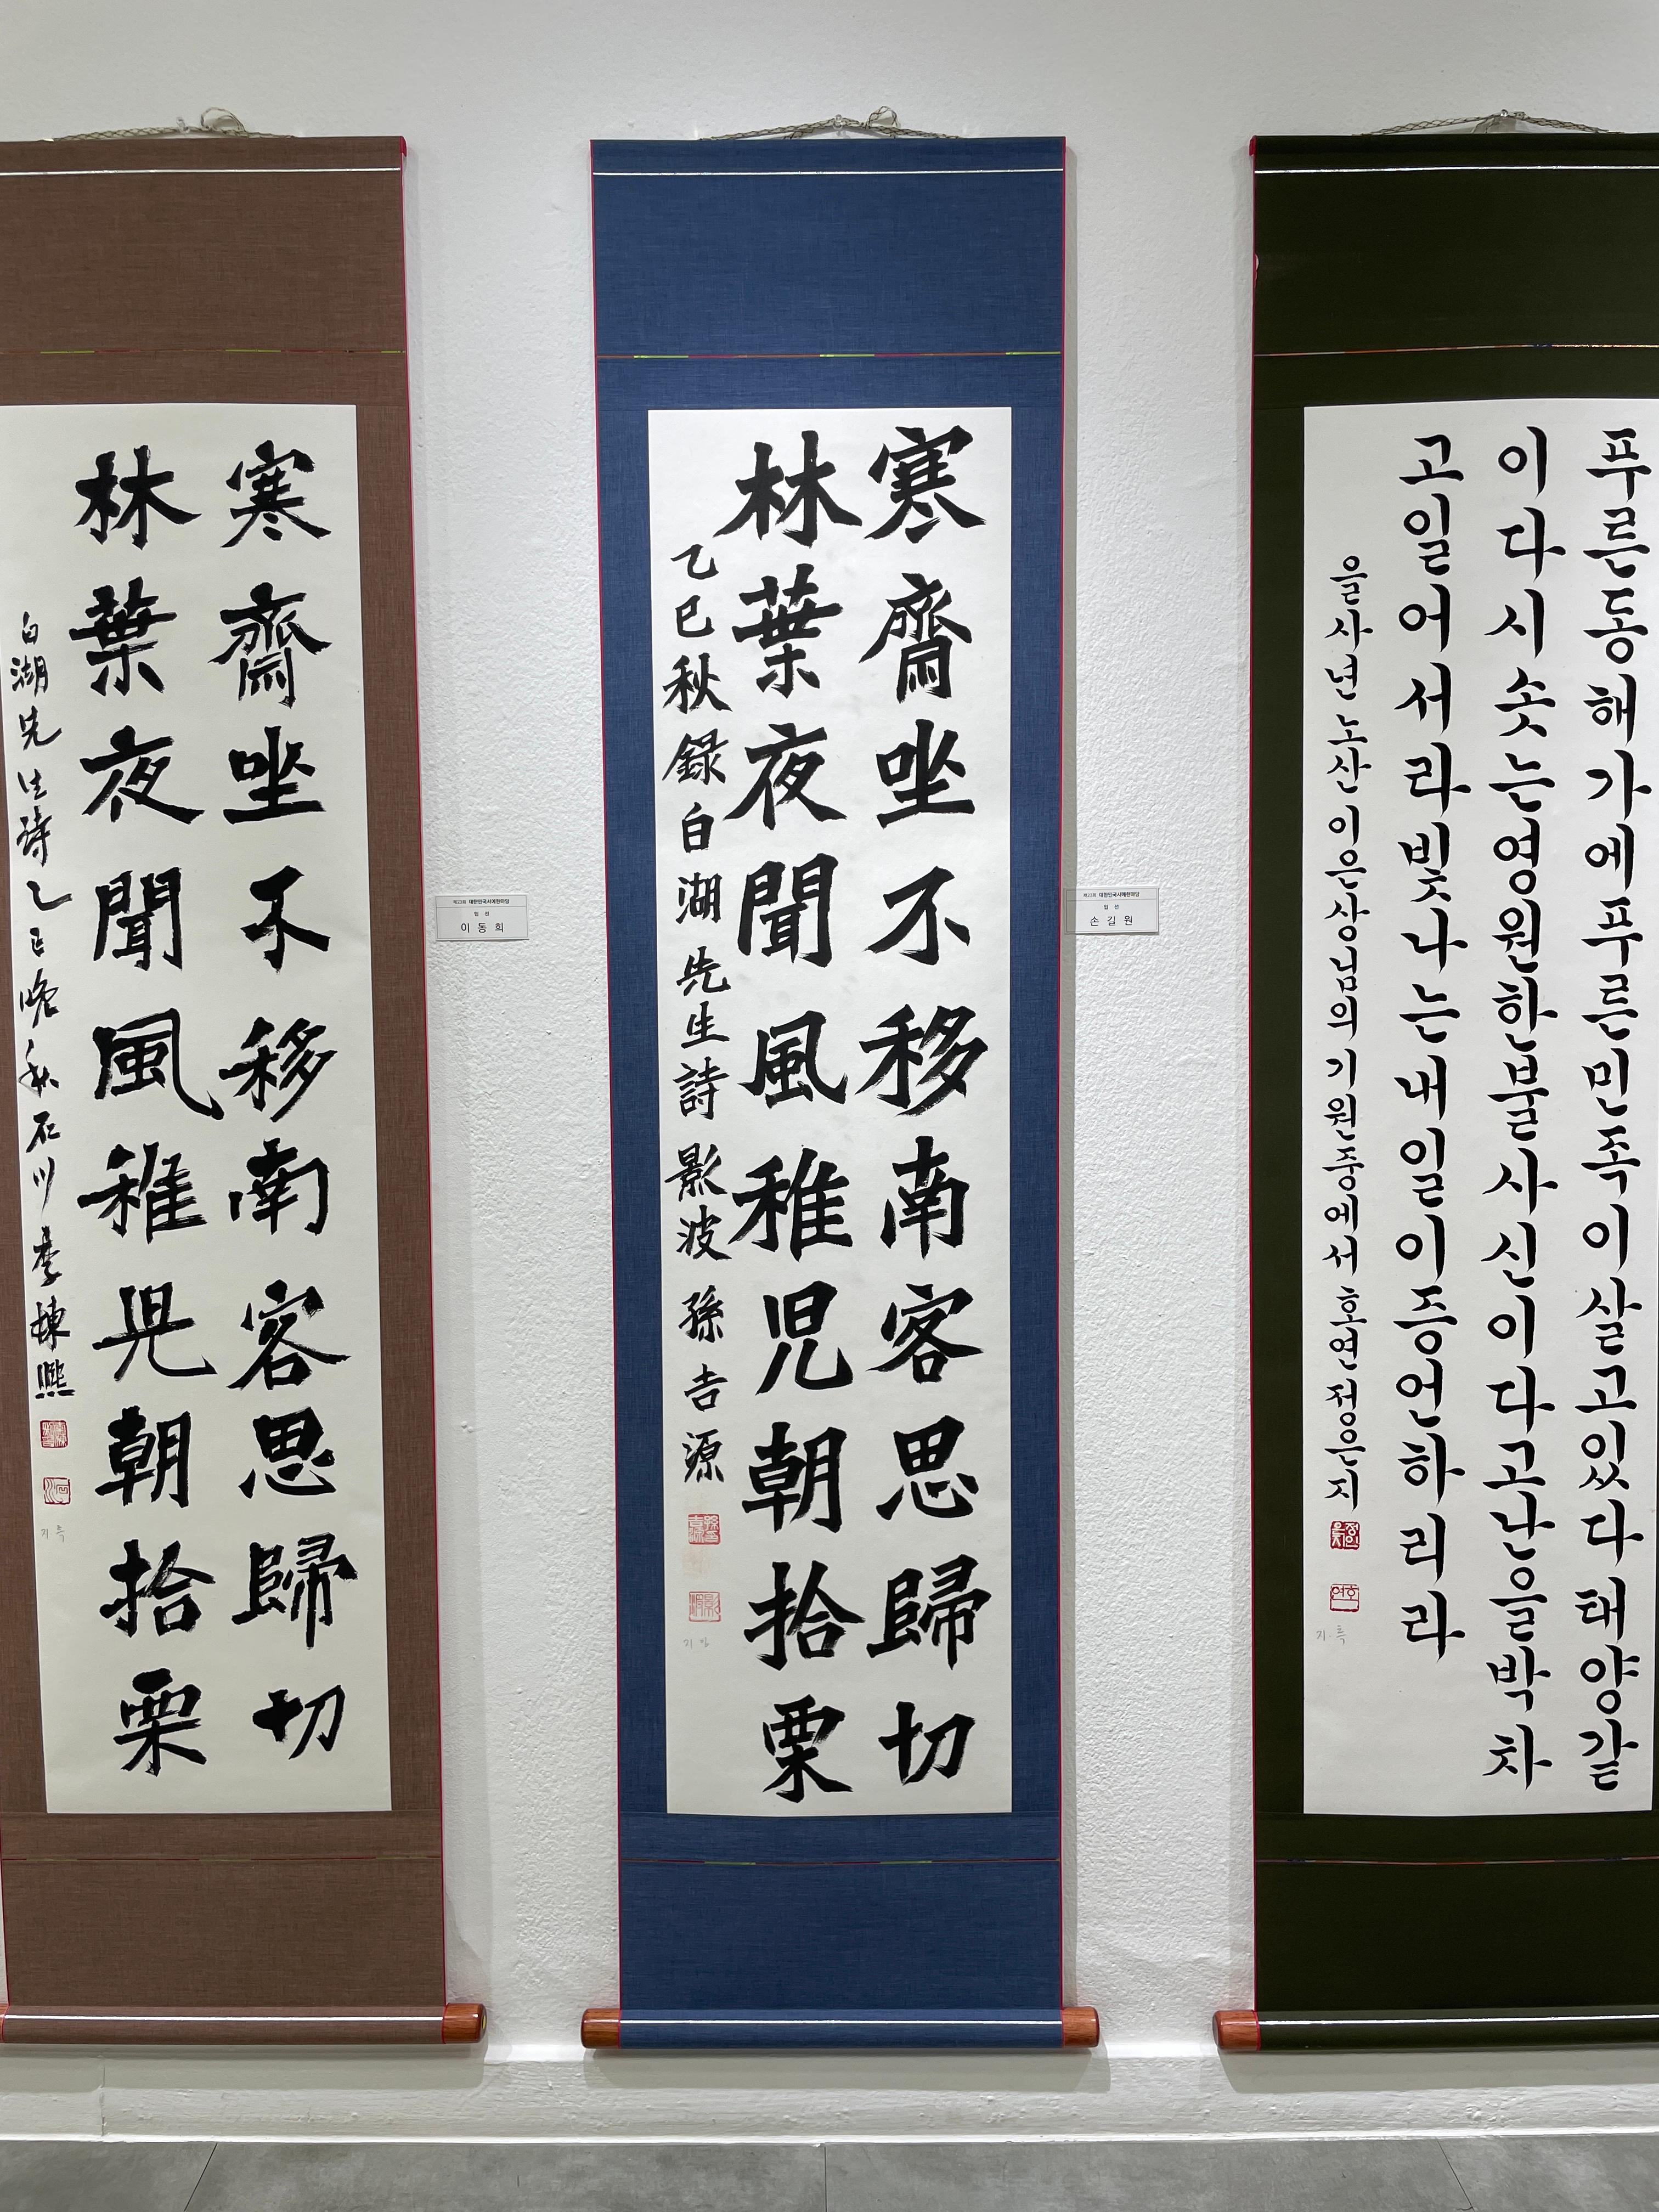 寒齋㘴不移南客思歸切
林葉夜聞風稚兒朝拾栗
白湖先生詩乙巳晩秋石川李棟熙
제23회 대한민국서예한마당
입선
이동희
寒齋㘴不移南客思歸切
林葉夜聞風稚児朝拾栗
乙巳秋録白湖先生詩影波孫吉源
제23회 대한민국서예한마당
입선
손길원
푸른동해가에푸른민족이살고있다태양같
이다시솟는영원한불사신이다고난을박차
고일어서라빛나는내일이증언하리라
을사년노산이은상님의기원중에서호연정은지